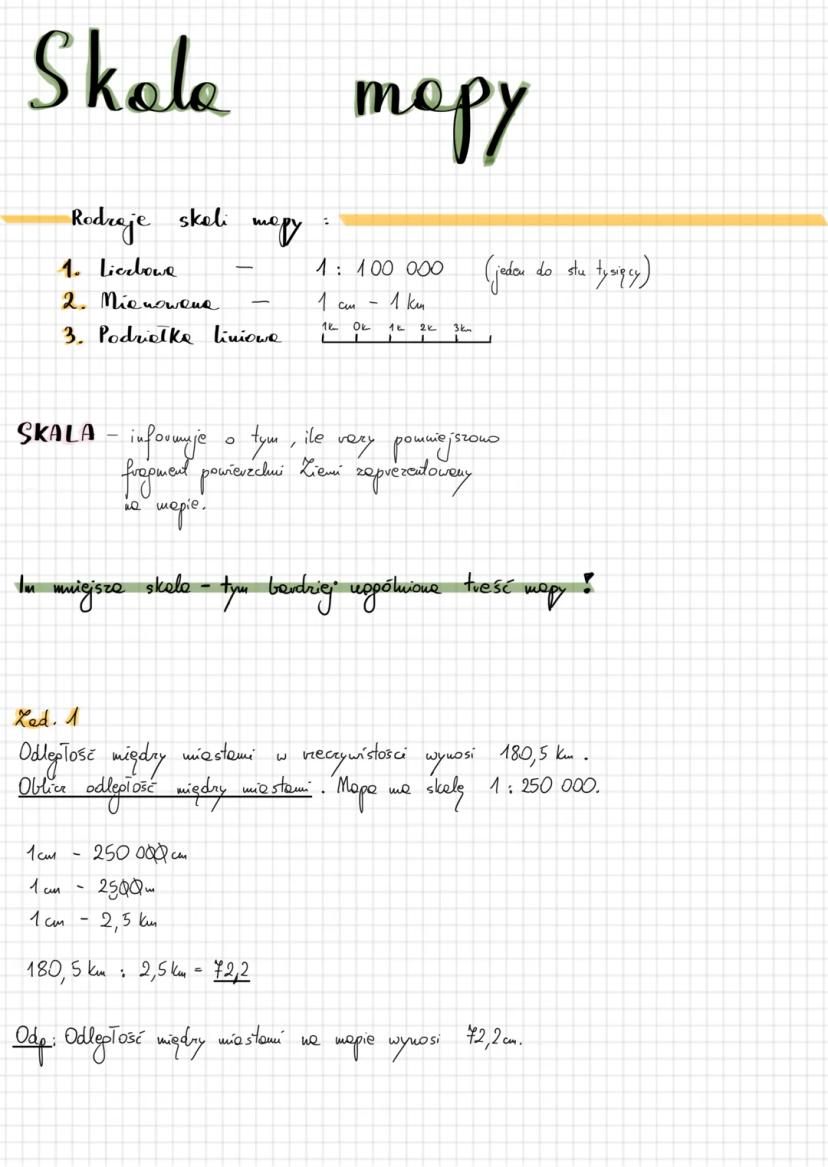 Skala mapy
Rodzaje skali mapy :
1. Liczbowa – 1 : 100 000 (jeden do stu tysięcy)
2. Mianowana – 1 cm – 1 km
3. Podziałka liniowa 1km 0k 1k 2k 3km
SKALA – informuje o tym, ile razy pomniejszono
fragment powierzchni Ziemi zaprezentowany
na mapie.
Im mniejsza skala – tym bardziej uogólniona treść mapy !
Zad. 1
Odległość między miastami w rzeczywistości wynosi 180,5 km .
Oblicz odległość między miastami . Mapa ma skalę 1 : 250 000.
1cm – 250 000 cm
1 cm – 2500m
1 cm – 2,5 km
180,5 km : 2,5 km = 72,2
Odp: Odległość między miastami na mapie wynosi 72,2cm.